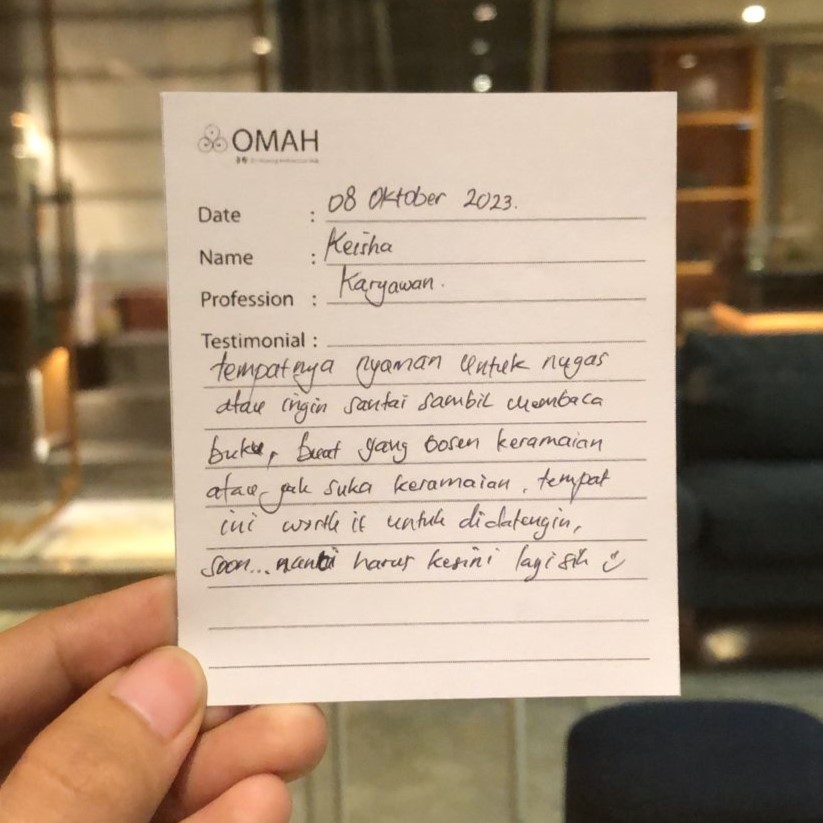 OMAH
Date : 08 Oktober 2023.
Name : Keisha
Profession : Karyawan.
Testimonial :
tempatnya nyaman untuk nugas
atau ingin santai sambil membaca
buku, buat yang bosen keramaian
atau gak suka keramaian, tempat
ini worth it untuk didatengin,
soon... nanti harus kesini lagi sih